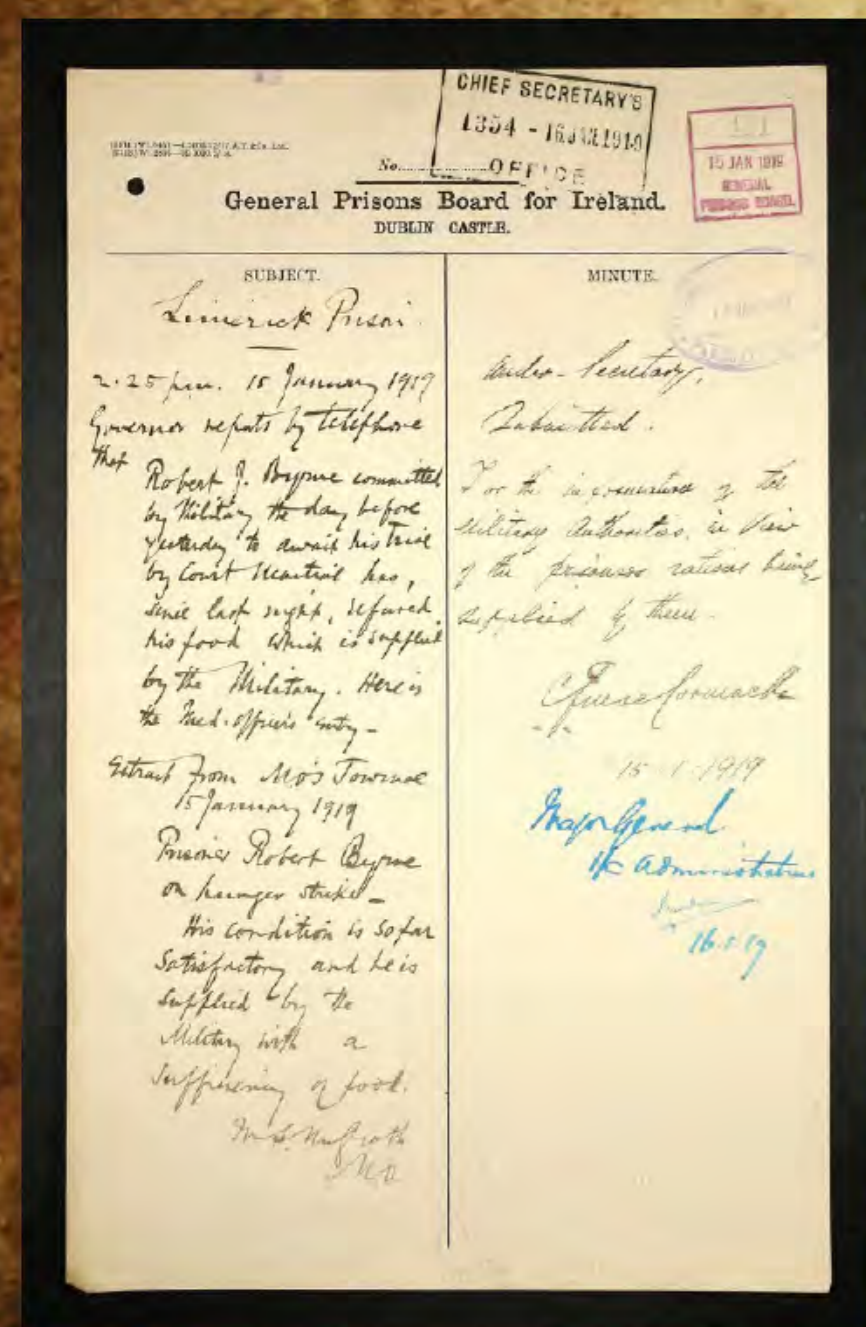 CHIEF SECRETARY'S
1354 - 16 JAN 1919
OFFICE
15 JAN 1919
GENERAL
PRISONS BOARD.
No.
General Prisons Board for Ireland.
DUBLIN CASTLE.
SUBJECT.
Limerick Prison.
2.25 pm. 15 January 1919
Governor reports by telephone
that
Robert J. Byrne committed
by Military the day before
yesterday to await his trial
by Court Martial has,
since last night, refused
his food which is supplied
by the Military. Here is
the Med. officer's entry -
Extract from MO's Journal
15 January 1919
Prisoner Robert Byrne
on hunger strike -
His condition is so far
satisfactory and he is
supplied by the
Military with a
sufficiency of food.
McGrath
MO
MINUTE.
Under-Secretary,
Submitted.
For the information of the
Military Authorities, in view
of the prisoners rations being
supplied by them.
15-1-1919
Major General
i/c Administration
16.1.19